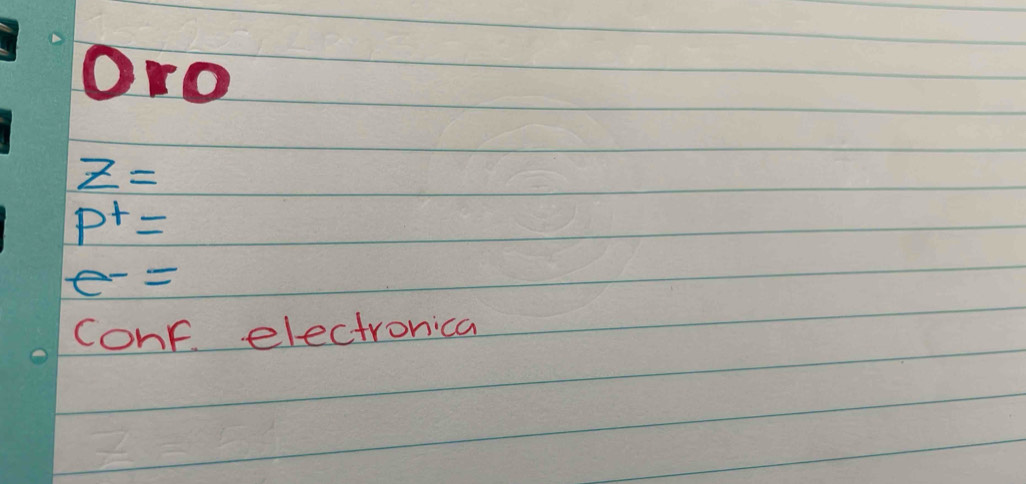 Oro
Z =
P+ =
e- =
Conf. electronica